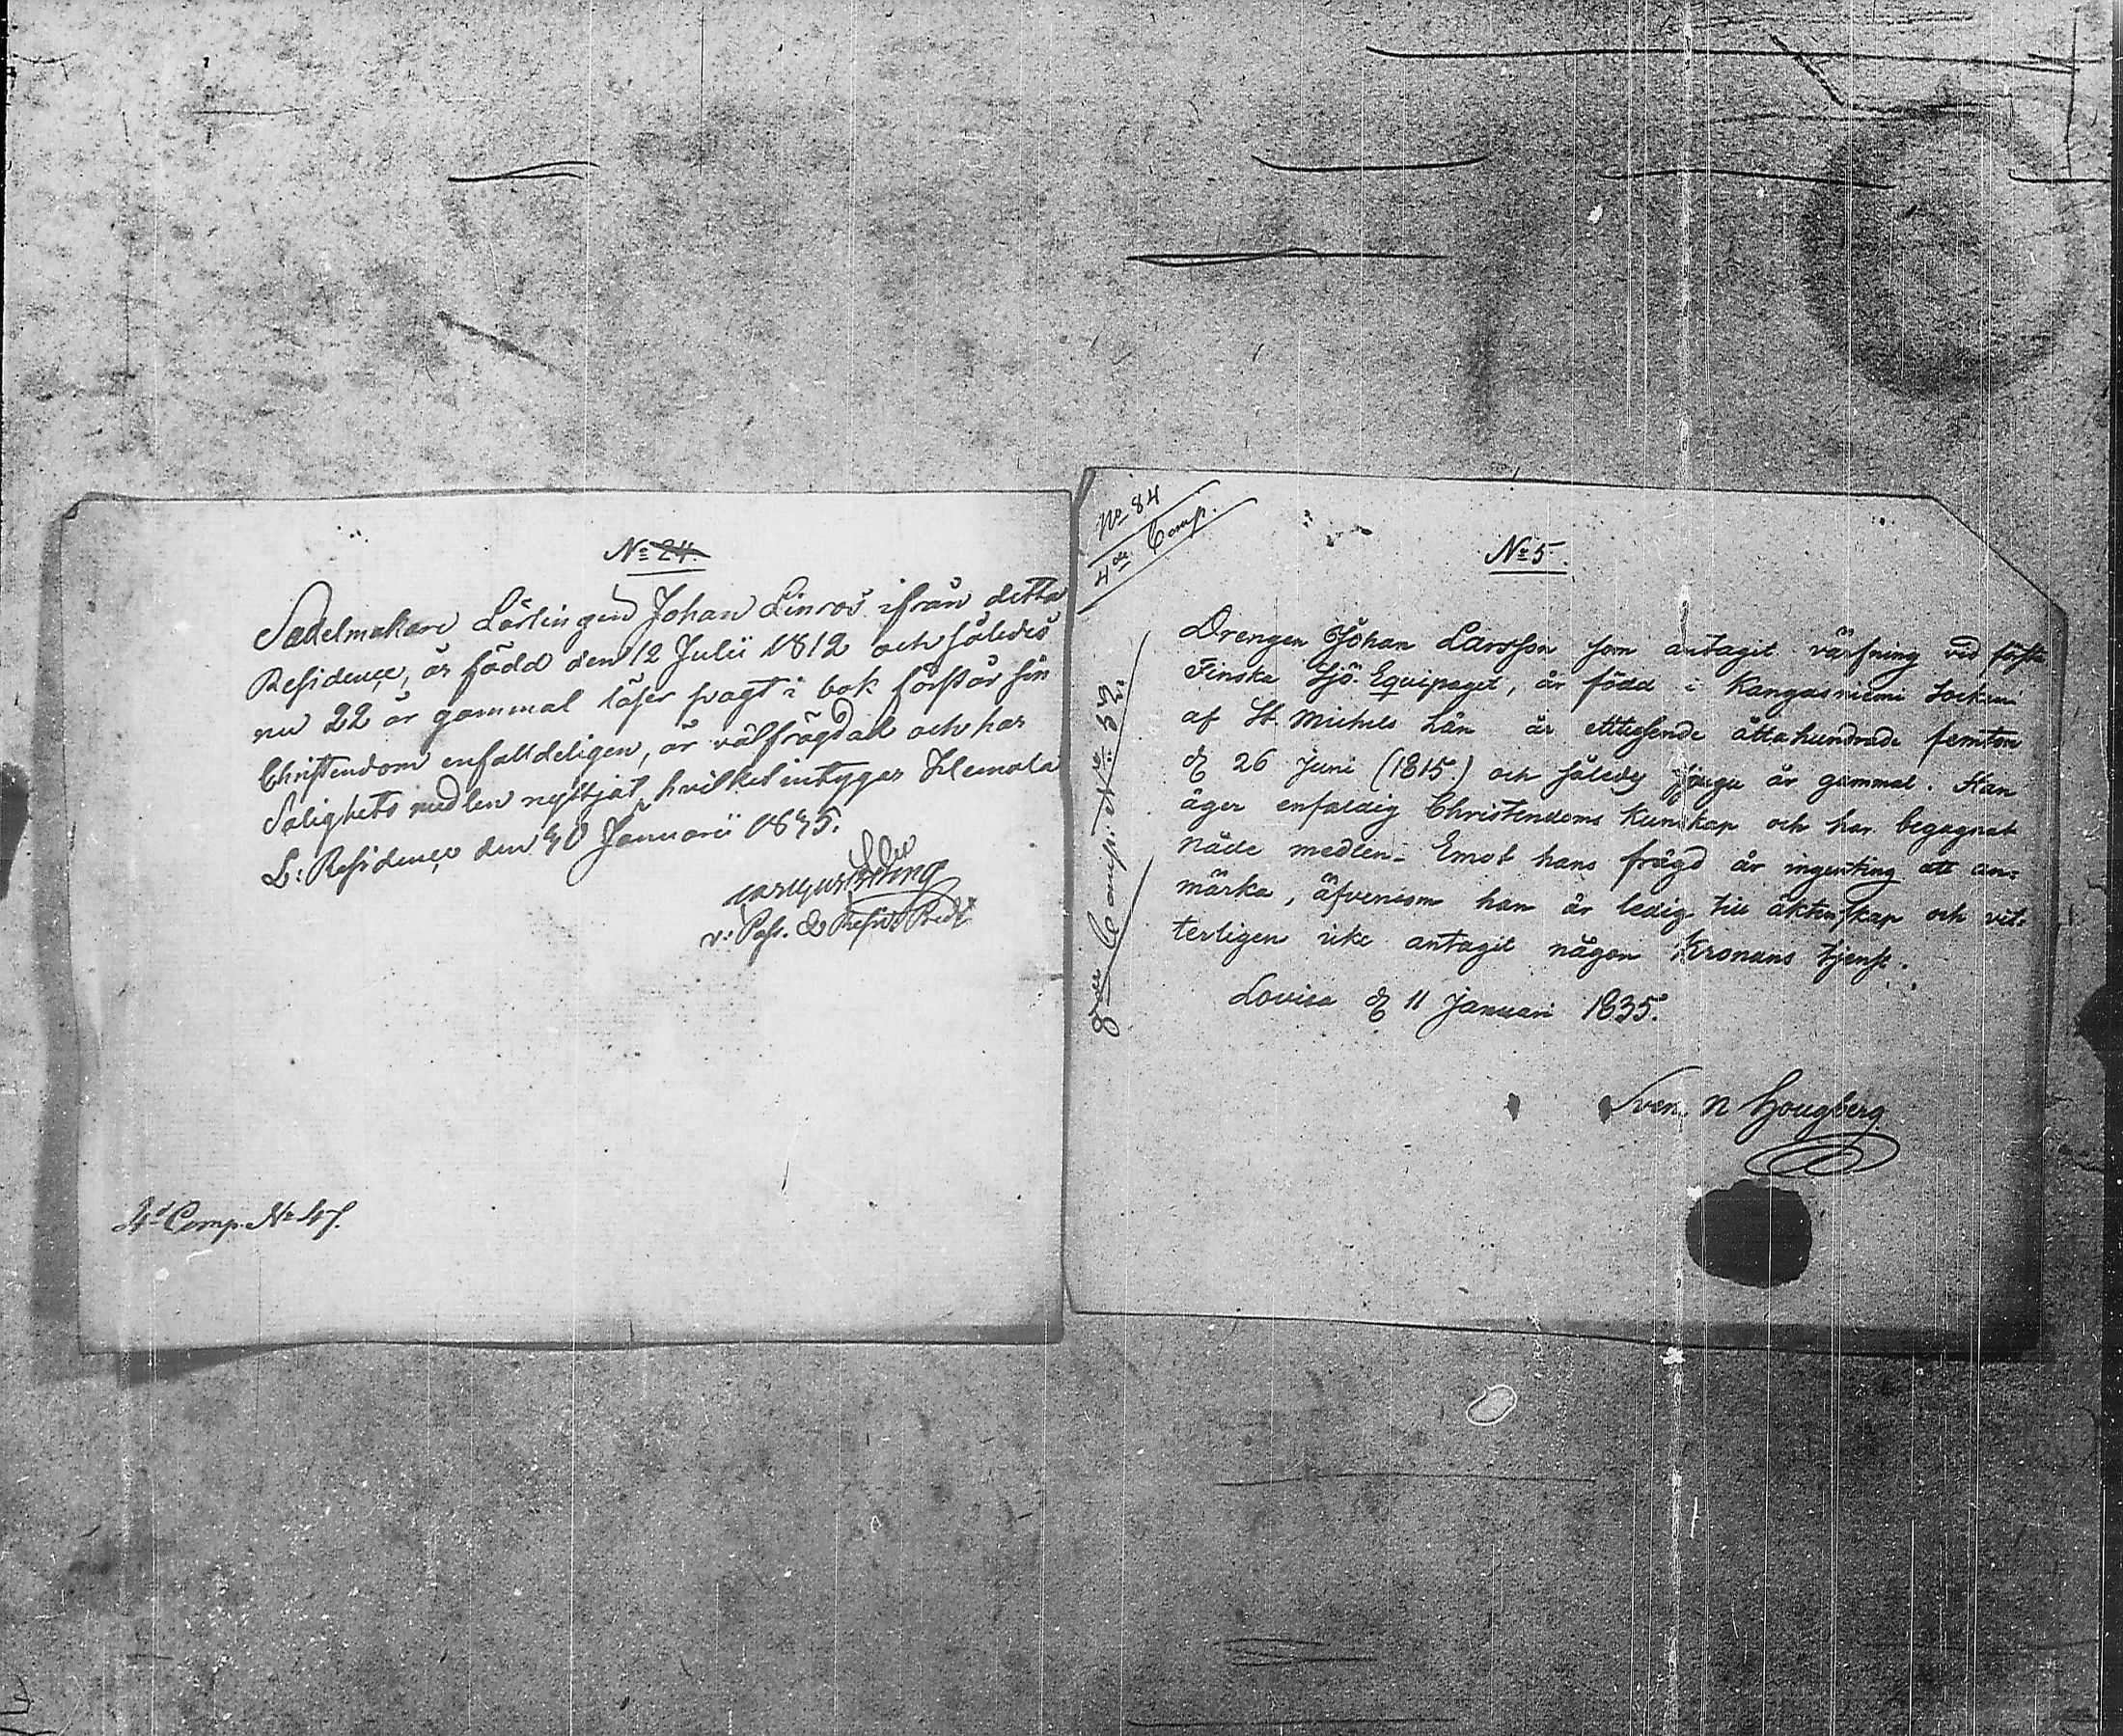 No 24.
Sadelmakare Lärlingen Johan Linros ifrån detta
Residence, är född den 12 Julii 1812 och således
nu 22 år gammal läser i bok förstår sin
Christendom enfalldeligen, är välfrägdad och har
Salighets medlen nyttjat, hvilket intygar Heinola
L: Residence den 30 Januarii 1835.
v: Past.
4d Comp. No 47.
No 84
4de Comp.
Comp: No 52.
No 5.
Drengen Johan Larsson som antagit värfning vid första
Finska Sjö-Equipaget, är född i Kangasniemi Socken
af St. Michels Län år ettusende åttahundrade femton
d 26 Juni (1815.) och således tjugu år gammal. Han
äger enfaldig Christendoms kunskap och har begagnat
nåde medlen. Emot hans frägd är ingenting att an-
märka, äfvensom han är ledig till äktenskap och vet-
terligen icke antagit någon Kronans tjenst.
Lovisa d 11 Januari 1835.
Sven N Hougberg